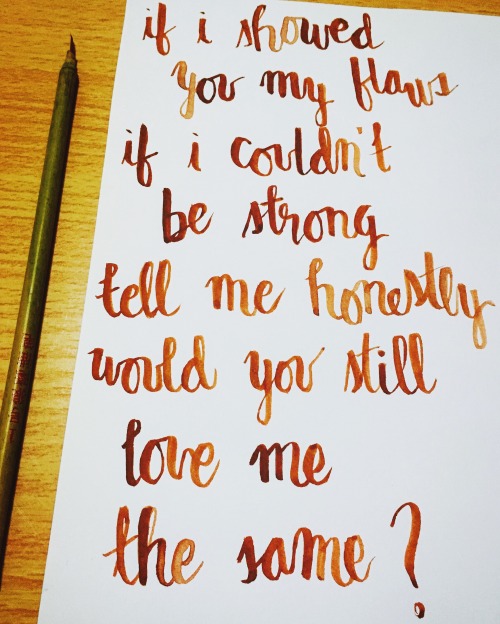 if i showed
you my flaws
if i couldn't
be strong
tell me honestly
would you still
love me
the same?